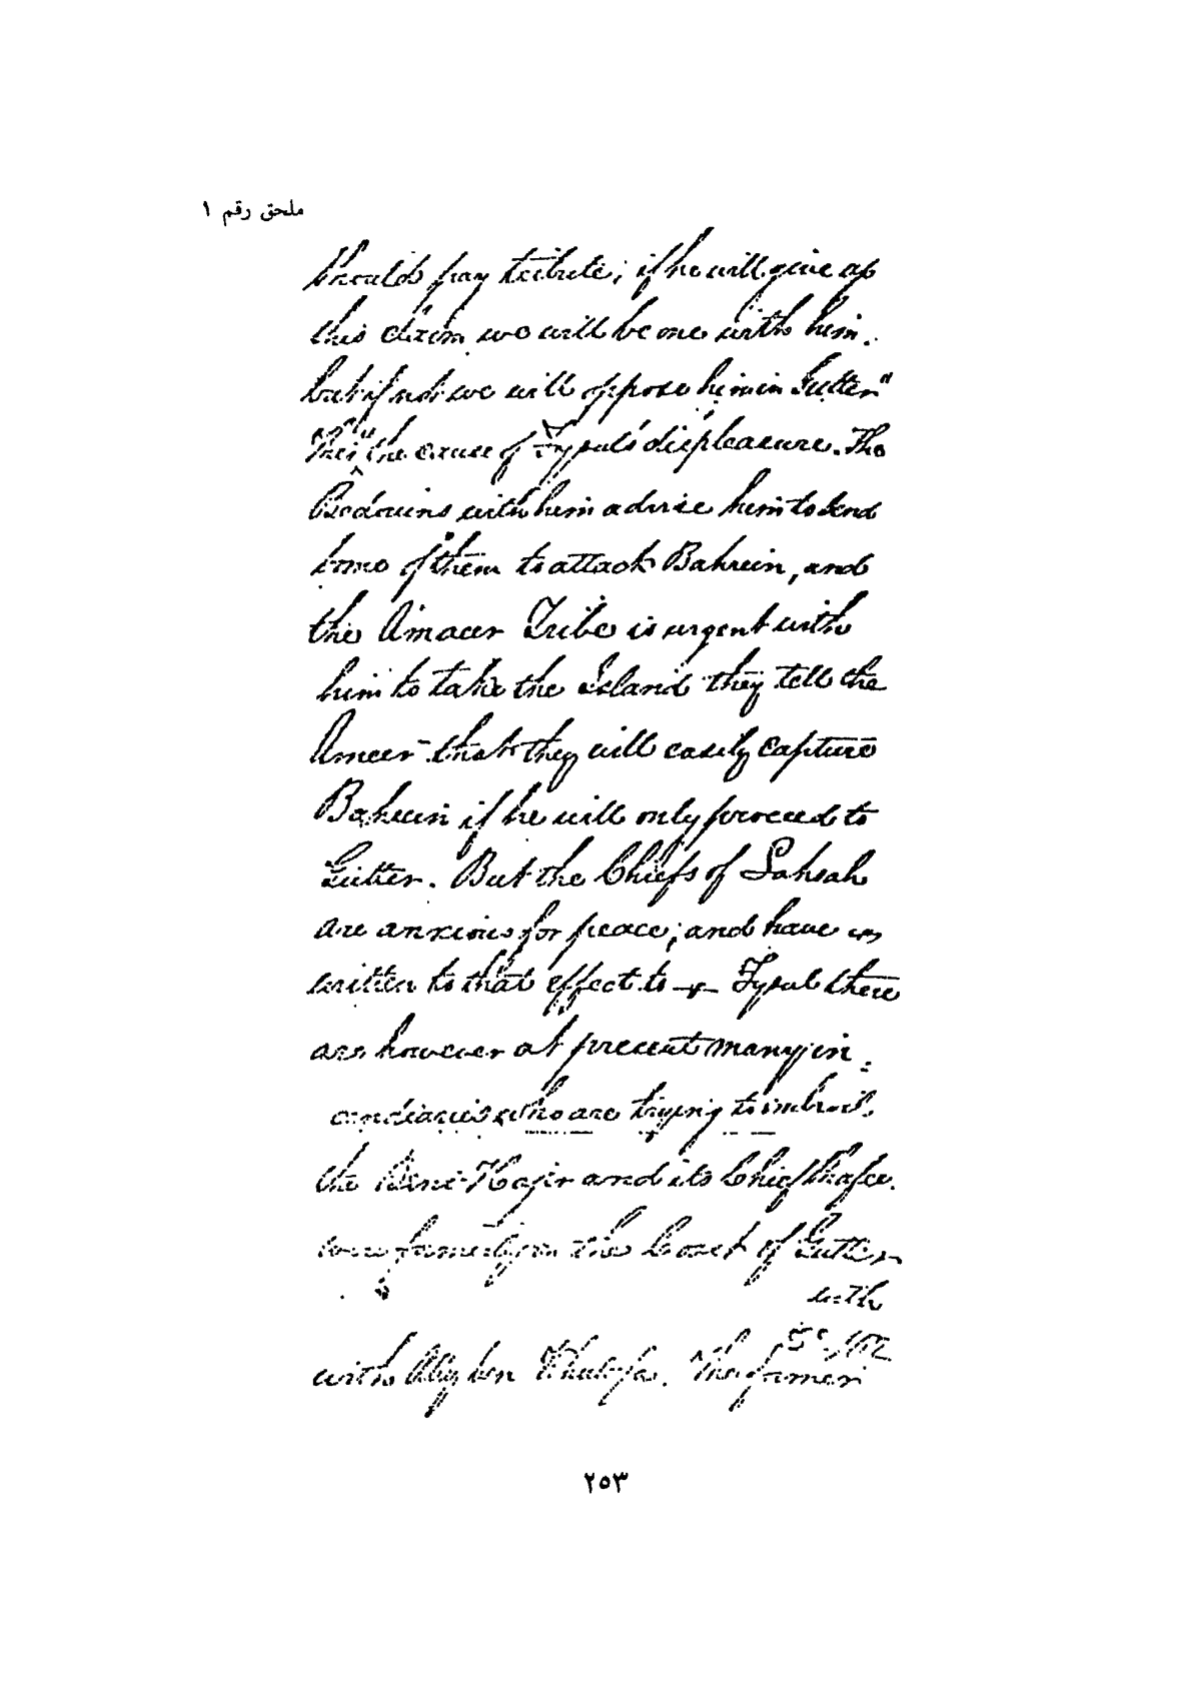 ملحق رقم ١
should pay tribute; if he will give up
this claim we will be one with him.
but if not we will oppose him in Gutter"
This is the cause of Fysul's displeasure. The
Bedouins with him advise him to send
some of them to attack Bahrein, and
the Amaeer Tribe is urgent with
him to take the Island they tell the
Ameer that they will easily capture
Bahrein if he will only proceed to
Gutter. But the Chiefs of Lahsah
are anxious for peace; and have
written to that effect to Fysul there
are however at present many in
cendiaries who are trying to embroil
the Beni Hajir and its Chief
were formerly on the Coast of Gutter
with
with Aly ben Khalifa. The former
٢٥٣